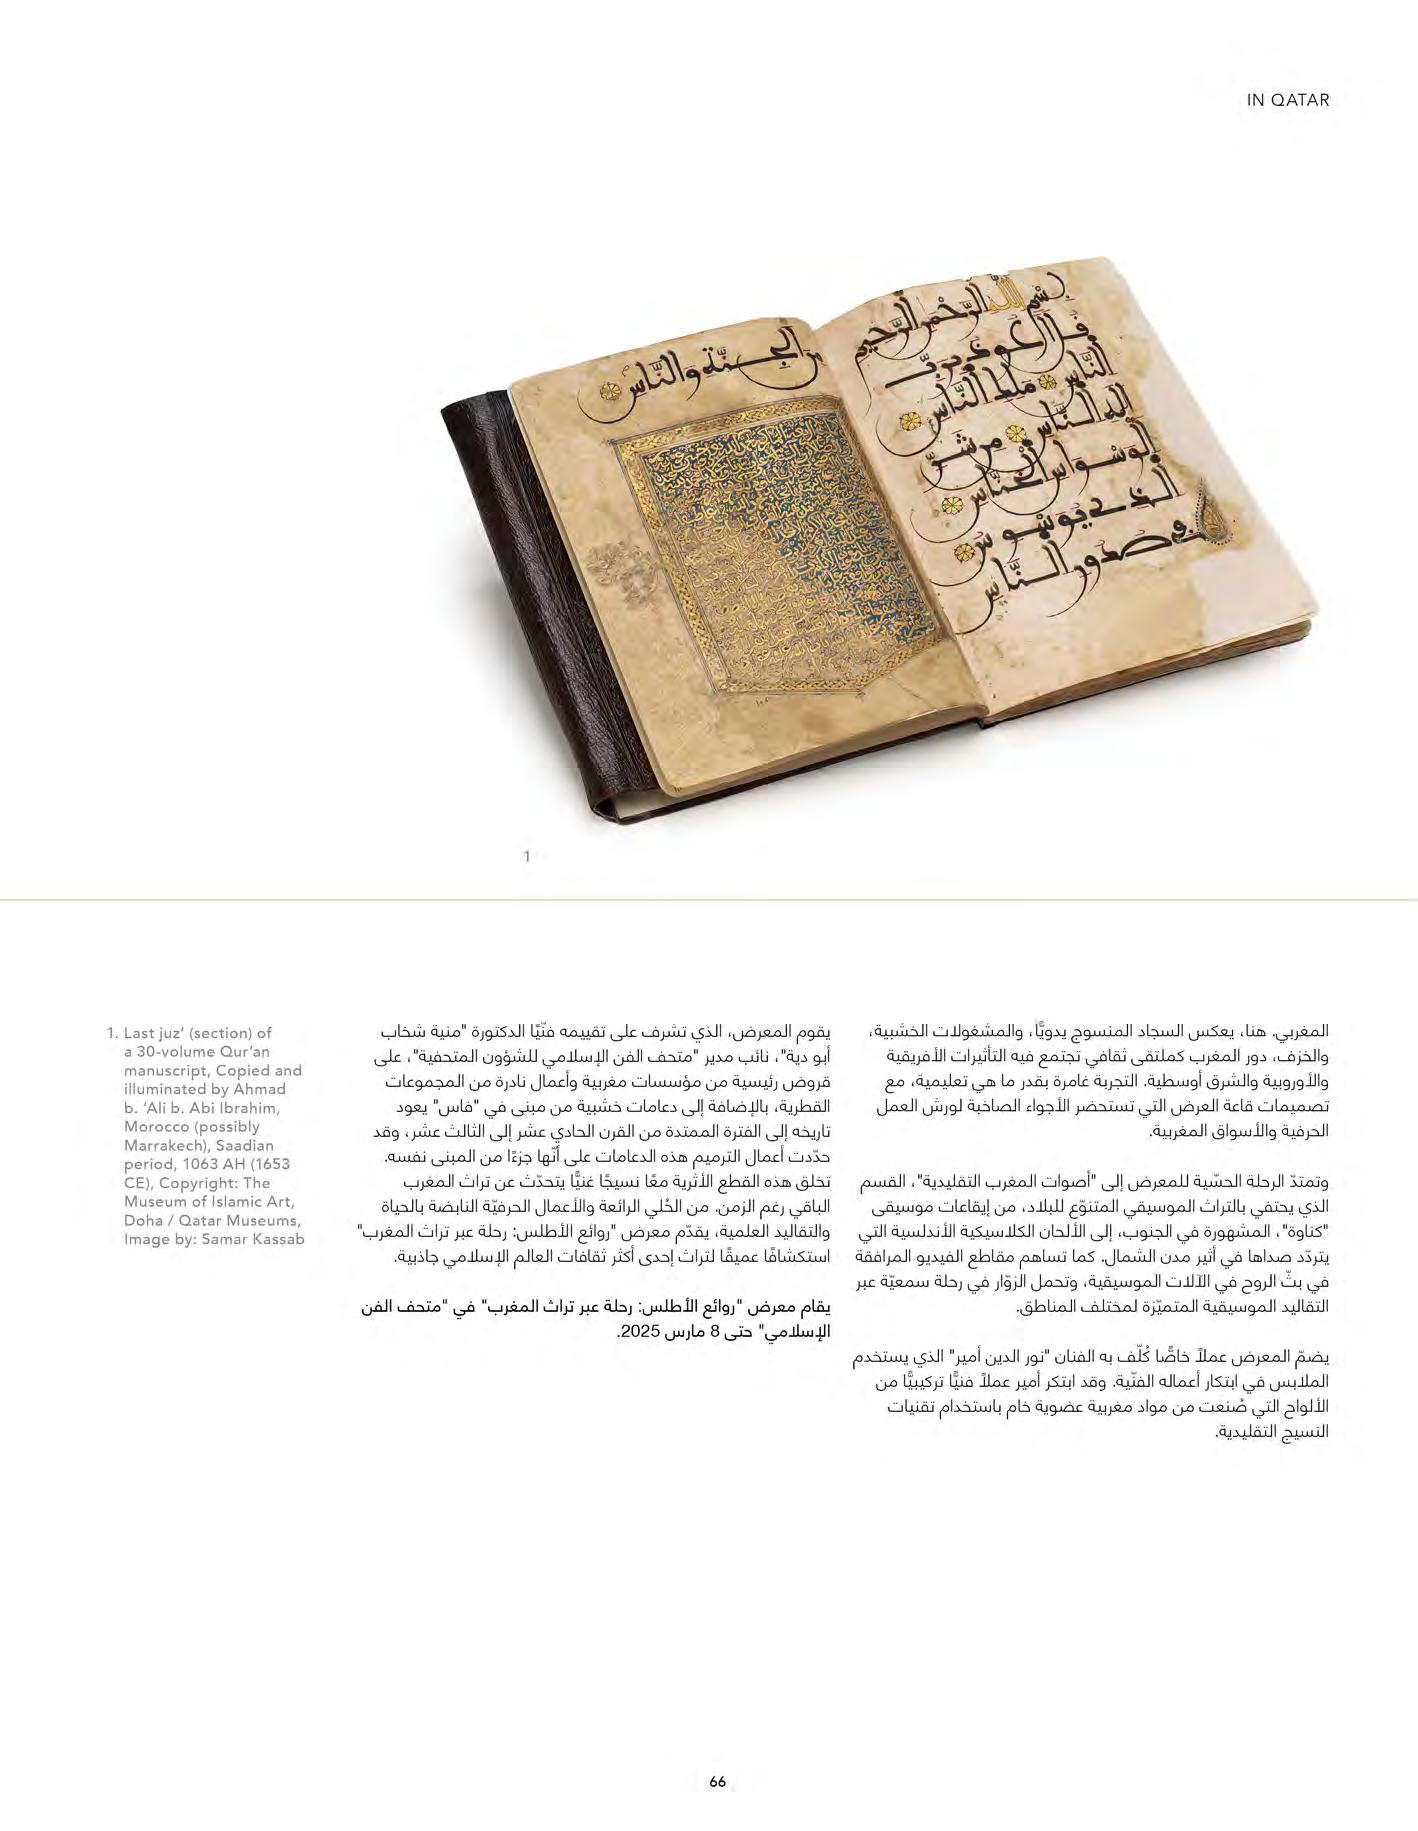 IN QATAR
بسم الله الرحمن الرحيم
قل أعوذ برب
الناس ملك الناس
إله الناس من شر
الوسواس الخناس
الذي يوسوس
في صدور الناس
من الجنة والناس
1
المغربي. هنا، يعكس السجاد المنسوج يدويًّا، والمشغولات الخشبية،
والخزف، دور المغرب كملتقى ثقافي تجتمع فيه التأثيرات الأفريقية
والأوروبية والشرق أوسطية. التجربة غامرة بقدر ما هي تعليمية، مع
تصميمات قاعة العرض التي تستحضر الأجواء الصاخبة لورش العمل
الحرفية والأسواق المغربية.
وتمتدّ الرحلة الحسّية للمعرض إلى "أصوات المغرب التقليدية"، القسم
الذي يحتفي بالتراث الموسيقي المتنوّع للبلاد، من إيقاعات موسيقى
"كناوة"، المشهورة في الجنوب، إلى الألحان الكلاسيكية الأندلسية التي
يتردّد صداها في أثير مدن الشمال. كما تساهم مقاطع الفيديو المرافقة
في بثّ الروح في الآلات الموسيقية، وتحمل الزوّار في رحلة سمعيّة عبر
التقاليد الموسيقية المتميّزة لمختلف المناطق.
يضمّ المعرض عملاً خاصًّا كُلّف به الفنان "نور الدين أمير" الذي يستخدم
الملابس في ابتكار أعماله الفنّية. وقد ابتكر أمير عملاً فنيًّا تركيبيًّا من
الألواح التي صُنعت من مواد مغربية عضوية خام باستخدام تقنيات
النسيج التقليدية.
يقوم المعرض، الذي تشرف على تقييمه فنّيًا الدكتورة "منية شخاب
أبو دية"، نائب مدير "متحف الفن الإسلامي للشؤون المتحفية"، على
قروض رئيسية من مؤسسات مغربية وأعمال نادرة من المجموعات
القطرية، بالإضافة إلى دعامات خشبية من مبنى في "فاس" يعود
تاريخه إلى الفترة الممتدة من القرن الحادي عشر إلى الثالث عشر، وقد
حدّدت أعمال الترميم هذه الدعامات على أنّها جزءًا من المبنى نفسه.
تخلق هذه القطع الأثرية معًا نسيجًا غنيًّا يتحدّث عن تراث المغرب
الباقي رغم الزمن. من الحُلي الرائعة والأعمال الحرفيّة النابضة بالحياة
والتقاليد العلمية، يقدّم معرض "روائع الأطلس: رحلة عبر تراث المغرب"
استكشافًا عميقًا لتراث إحدى أكثر ثقافات العالم الإسلامي جاذبية.
يقام معرض "روائع الأطلس: رحلة عبر تراث المغرب" في "متحف الفن
الإسلامي" حتى 8 مارس 2025.
1. Last juz’ (section) of
a 30-volume Qur’an
manuscript, Copied and
illuminated by Ahmad
b. ‘Ali b. Abi Ibrahim,
Morocco (possibly
Marrakech), Saadian
period, 1063 AH (1653
CE), Copyright: The
Museum of Islamic Art,
Doha / Qatar Museums,
Image by: Samar Kassab
66